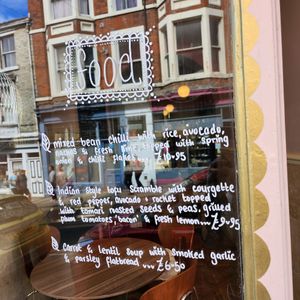 food
mixed bean chilli with rice, avocado,
nachos & fresh lime topped with spring
onion & chilli flakes £10.95
Indian Style tofu Scramble with courgette
& red pepper, avocado + rocket topped
with tamari roasted seeds & peas, grilled
plum tomatoes, 'bacon' & fresh lemon... £9.95
Carrot & lentil soup with smoked garlic
& parsley flatbread ... £6.50